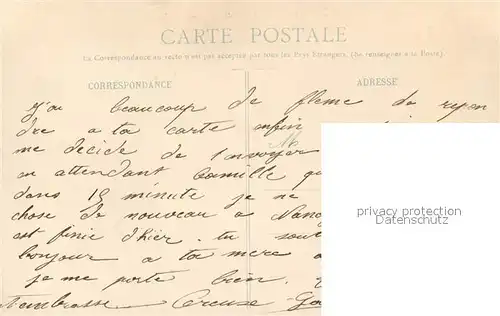 CARTE POSTALE
La Correspondance au recto n'est pas acceptée par tous les Pays Etrangers. (Se renseigner à la Poste).
CORRESPONDANCE
ADRESSE
J'ai beaucoup de fleme de repon
dre a ta carte enfin
me decide de t'envoyer
en attendant Camille qu
dans 15 minute je ne
chose de nouveau a Nanc
est finie d'hier. tu sou
bonjour a ta mere a
je me porte bien.
T'embrasse
privacy protection
Datenschutz